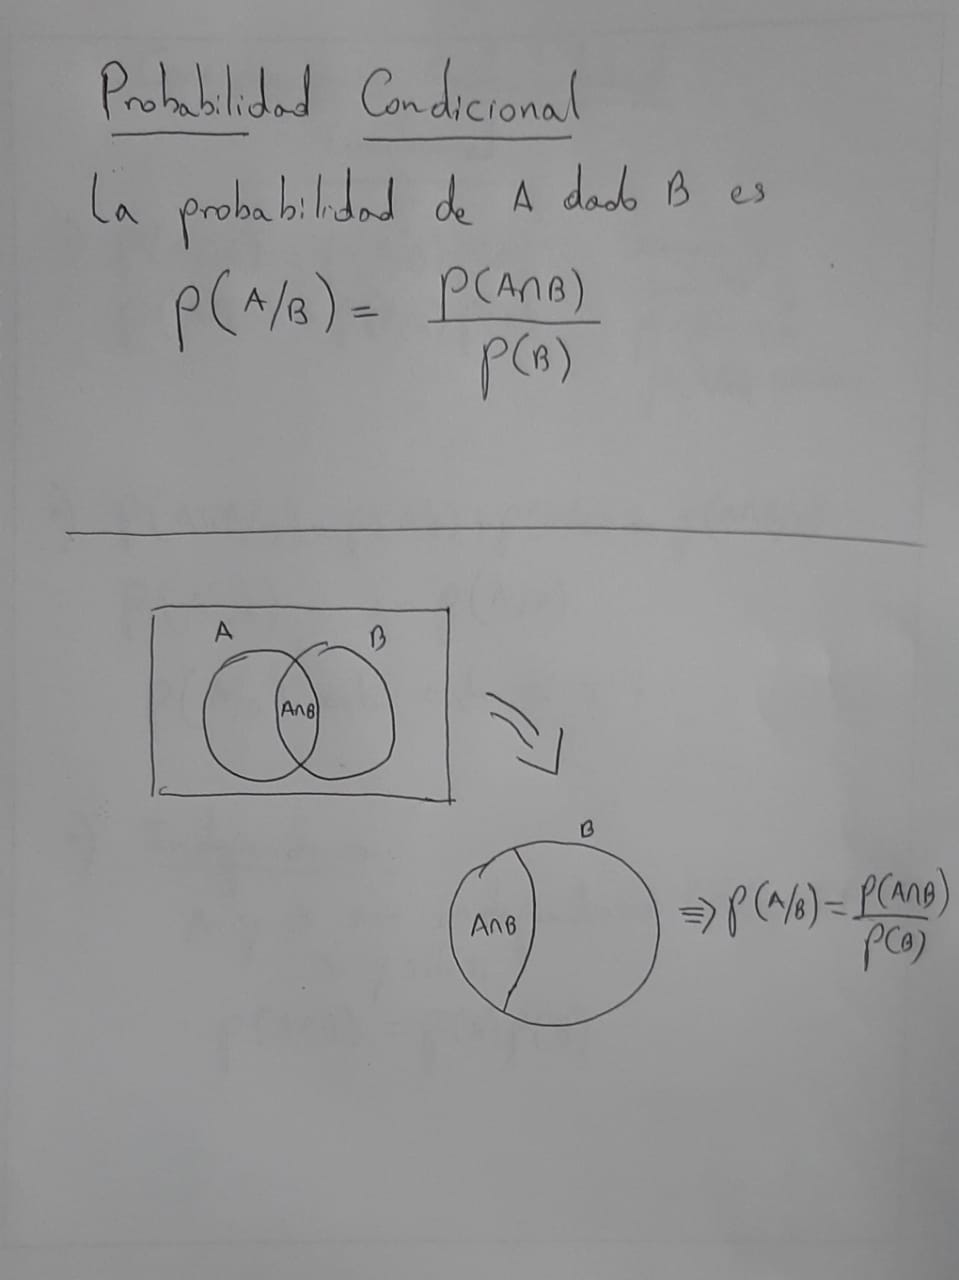 Probabilidad Condicional
La probabilidad de A dado B es
P(A/B) = P(A∩B)
P(B)
A
B
A∩B
B
A∩B
⇒ P(A/B) = P(A∩B)
P(B)